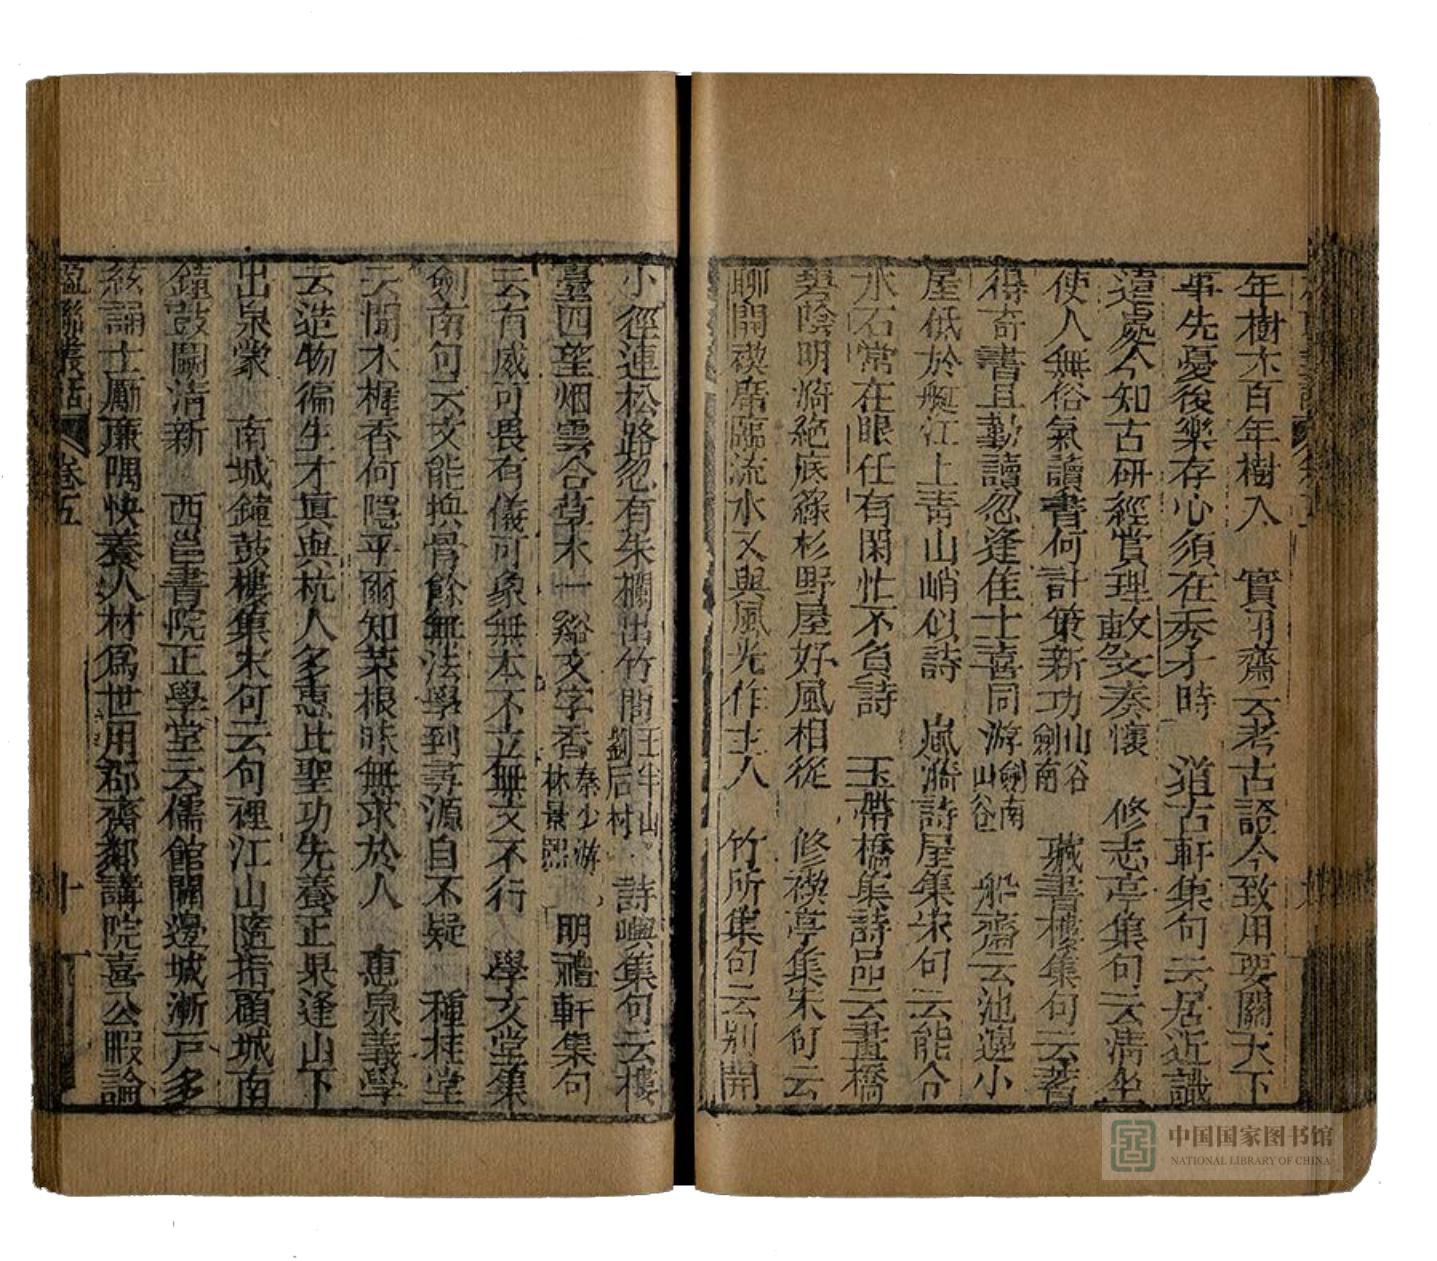 年樹木百年樹人　實用齋云考古證今致用要關天下
事先憂後樂存心須在秀才時　道古軒集句云居近識
遺處今知古研經賞理敦文奏懷　修志亭集句云清坐
使人無俗氣讀書何計策新功山谷劍南　藏書樓集句云著
得奇書且勤讀忽逢佳士喜同游劍南山谷　船齋云池邊小
屋低於艇江上青山峭似詩　嵐漪詩屋集宋句云能令
水石常在眼任有閑忙不負詩　玉帶橋集詩品云畫橋
碧陰明漪絕底綠杉野屋好風相從　修禊亭集宋句云
聊開禊席臨流水又與風光作主人　竹所集句云別開
小徑連松路忽有朱欄出竹間王半山劉后村　詩嶼集句云樓
臺四望烟雲合草木一谿文字香秦少游林景熙　明禮軒集句
云有威可畏有儀可象無本不立無文不行　學文堂集
劍南句云文能換骨餘無法學到尋源自不疑　種桂堂
云聞木樨香何隱乎爾知菜根味無求於人　惠泉義學
云造物徧生才眞與杭人多多惠此聖功先養正果逢山下
出泉蒙　南城鐘鼓樓集宋句云句裡江山隨指顧城南
鐘鼓鬭清新　西邑書院正學堂云儒館關邊城漸戸多
絃誦士勵廉隅快養人材爲世用郡齋鄰講院喜公暇論
楹聯叢話　卷五　十一
中国国家图书馆
NATIONAL LIBRARY OF CHINA